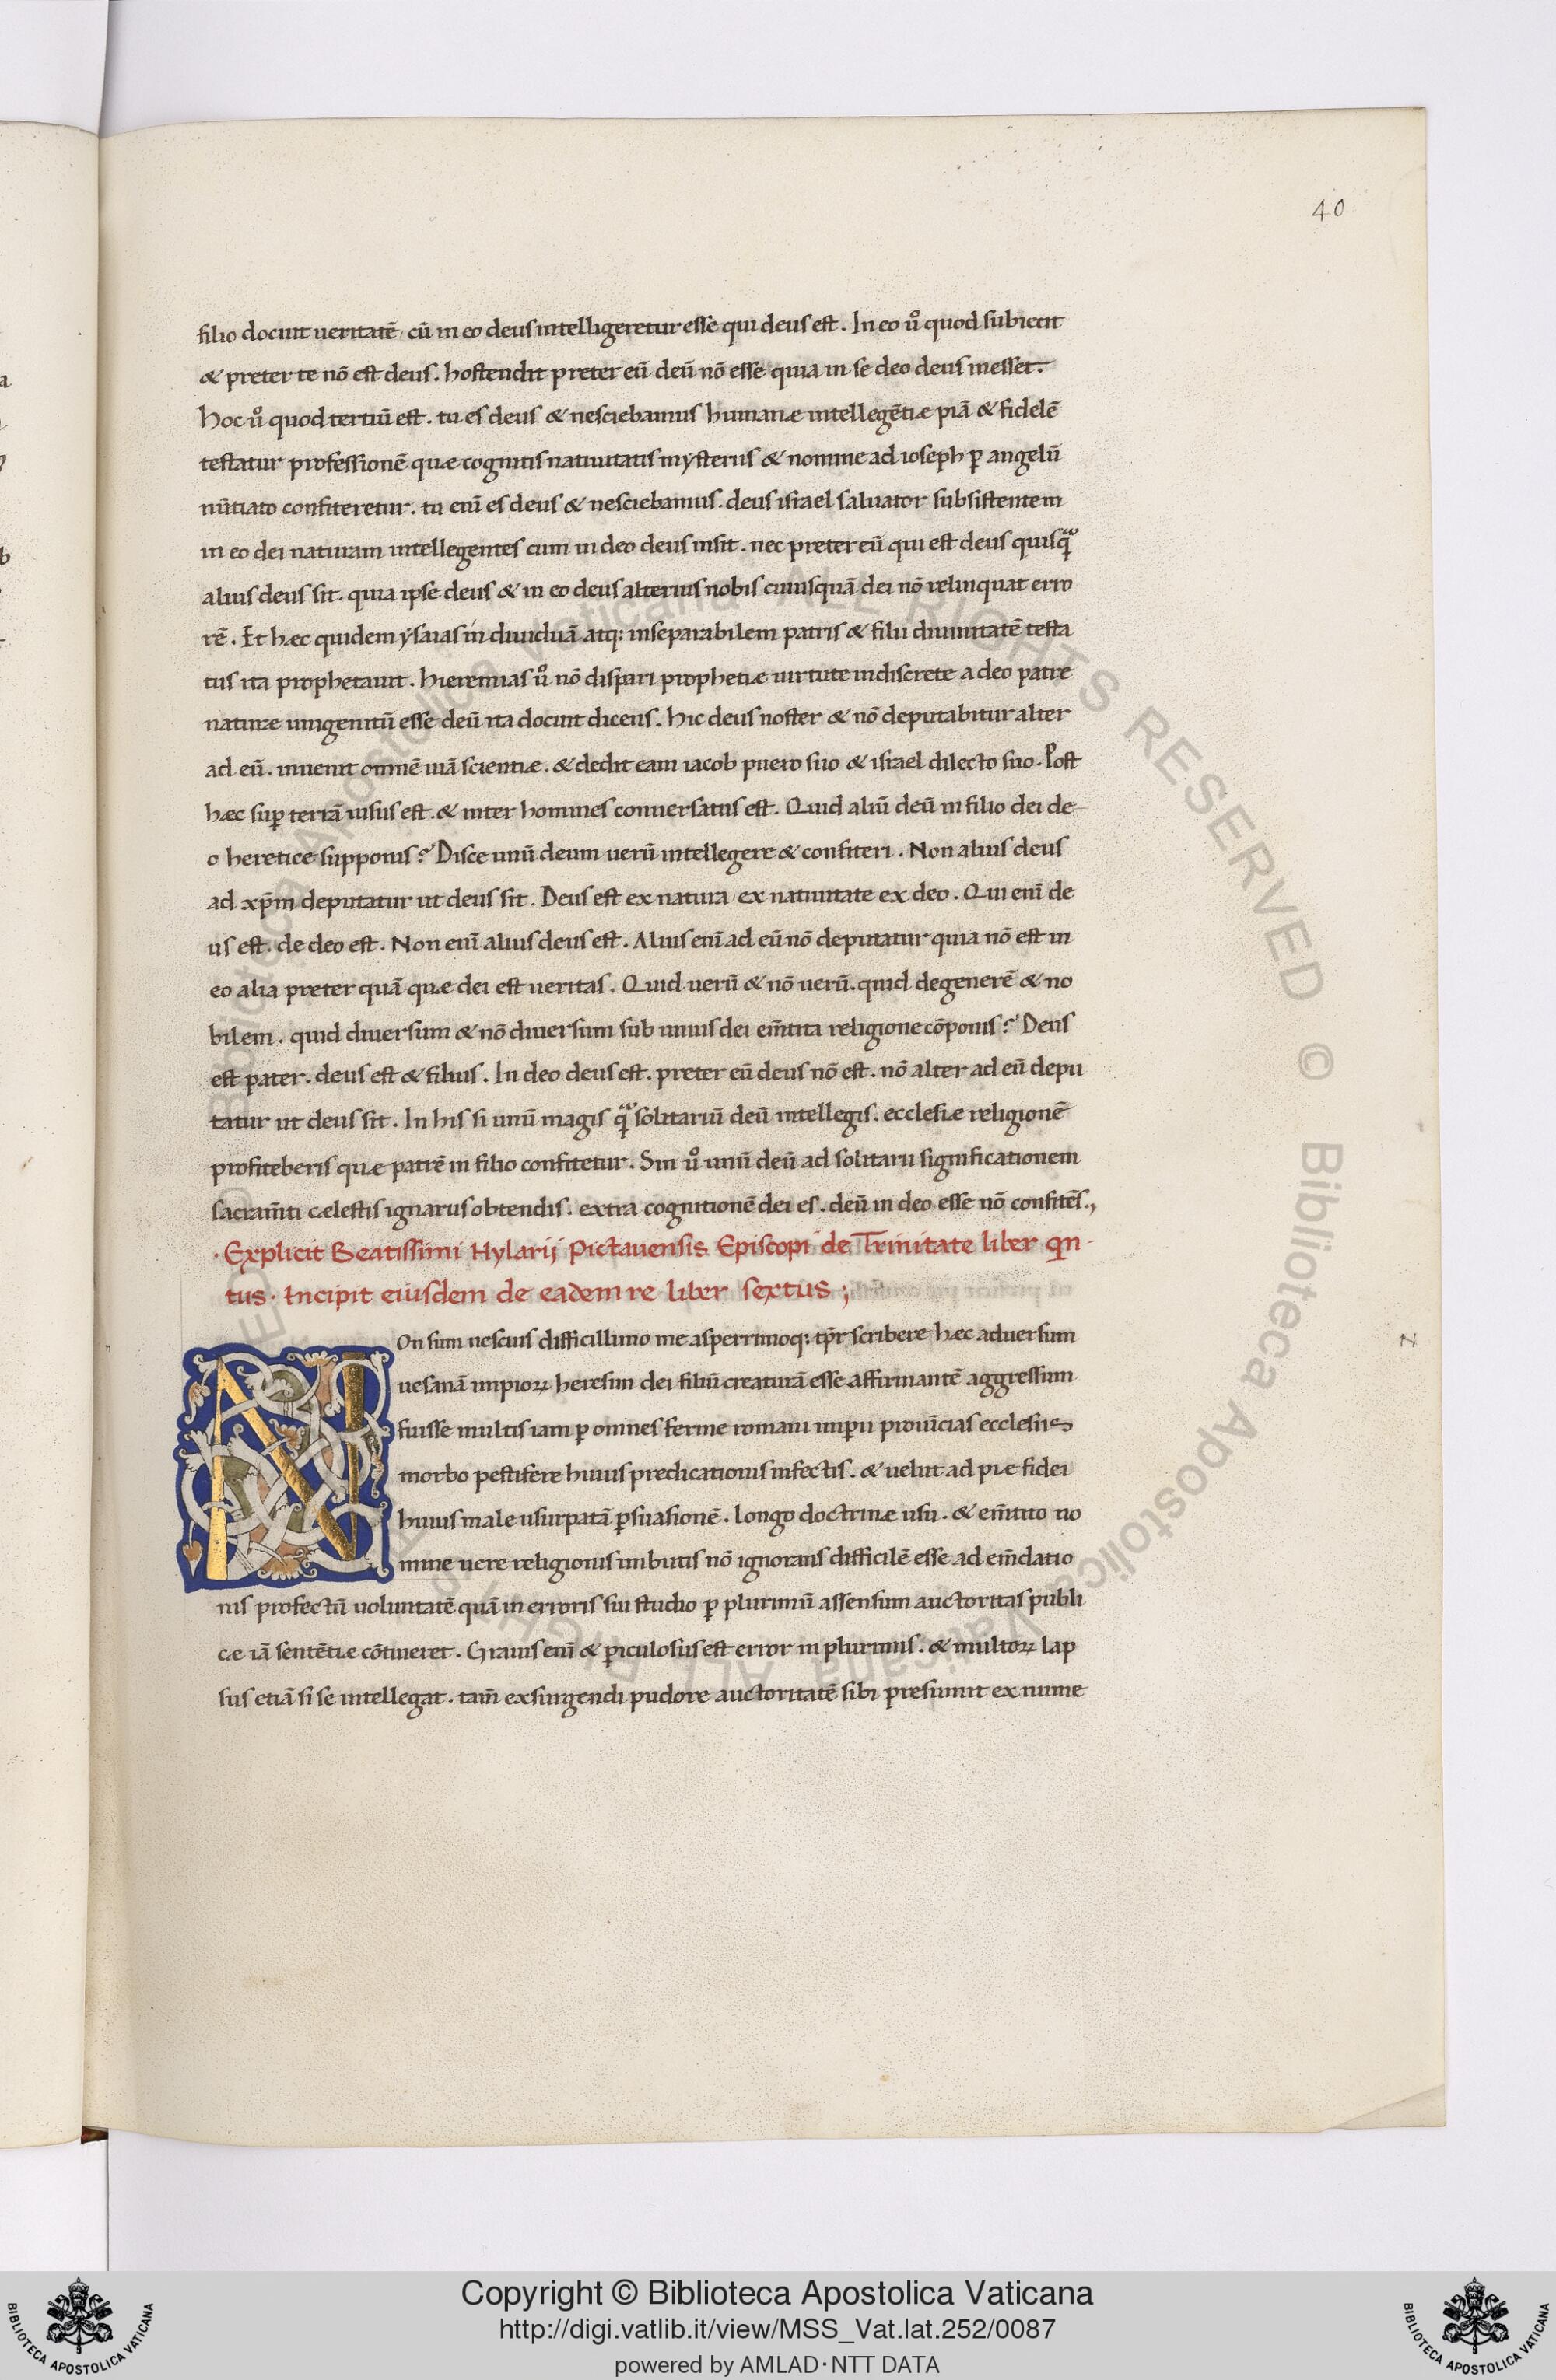 40
filio docuit ueritatē cū in eo deus intelligeretur esse qui deus est. In eo u͛o quod subiecit
& preter te nō est deus. hostendit preter eū deū nō esse quia in se deo deus inesset.
Hoc u͛o quod tertiū est. tu es deus & nesciebamus humanæ intellegētiæ piā & fidelē
testatur professionē quæ cognitis natiuitatis mysteriis & nomine ad ioseph ꝑ angelū
nūtiato confiteretur. tu enī es deus & nesciebamus. deus israel saluator subsistentem
in eo dei naturam intellegentes cum in deo deus insit. nec preter eū qui est deus quisqᷓ
alius deus sit. quia ipse deus & in eo deus alterius nobis cuiusquā dei nō relinquat erro
rē. Et hæc quidem ysaias in diuiduā atq: inseparabilem patris & filii diuinitatē testa
tus ita prophetauit. hieremias u͛o nō dispari prophetiæ uirtute indiscrete a deo patre
naturæ unigenitū esse deū ita docuit dicens. hic deus noster & nō deputabitur alter
ad eū. inuenit omnē uiā scientiæ. & dedit eam iacob puero suo & israel dilecto suo. Post
hæc suꝑ terrā uisus est. & inter homines conuersatus est. Quid aliū deū in filio dei de-
o heretice supponis? Disce unū deum uerū intellegere & confiteri. Non alius deus
ad xp̄m deputatur ut deus sit. Deus est ex natura ex natiuitate ex deo. Qui enī de
us est. de deo est. Non enī alius deus est. Alius enī ad eū nō deputatur quia nō est in
eo alia preter quā quæ dei est ueritas. Quid uerū & nō uerū. quid degenerē & no
bilem. quid diuersum & nō diuersum sub unius dei em̄tita religione cōponis? Deus
est pater. deus est & filius. In deo deus est. preter eū deus nō est. nō alter ad eū depu
tatur ut deus sit. In his si unū magis qᷓ solitariū deū intellegis. ecclesiæ religionē
profiteberis quæ patrē in filio confitetur. Sin u͛o unū deū ad solitarii significationem
sacram̄ti cælestis ignarus obtendis. extra cognitionē dei es. deū in deo esse nō confitēs.,
· Explicit Beatissimi Hylarij Pictauensis Episcopi de Trinitate liber qn-
tus. Incipit eiusdem de eadem re liber sextus ;
NOn sum nescius difficillimo me asperrimoq: tp̄r scribere hæc aduersum
uesanā impioꝝ heresim dei filiū creaturā esse affirmantē aggressum
fuisse multis iam ꝑ omnes ferme romani imꝑii prouīcias ecclesiis
morbo pestifere huius predicationis infectis. & uelut ad piæ fidei
huius male usurpatā ꝑsuasionē. longo doctrinæ usu. & em̄tito no
mine uere religionis imbutis nō ignorans difficilē esse ad em̄datio
nis profectū uoluntatē quā in erroris sui studio ꝑ plurimū assensum auctoritas publi
cæ iā sentētiæ cōtineret. Grauis enī & ꝑiculosus est error in plurimis. & multoꝝ lap
sus etiā si se intellegat. tam̄ exsurgendi pudore auctoritatē sibi presumit ex nume
Copyright © Biblioteca Apostolica Vaticana
http://digi.vatlib.it/view/MSS_Vat.lat.252/0087
powered by AMLAD·NTT DATA